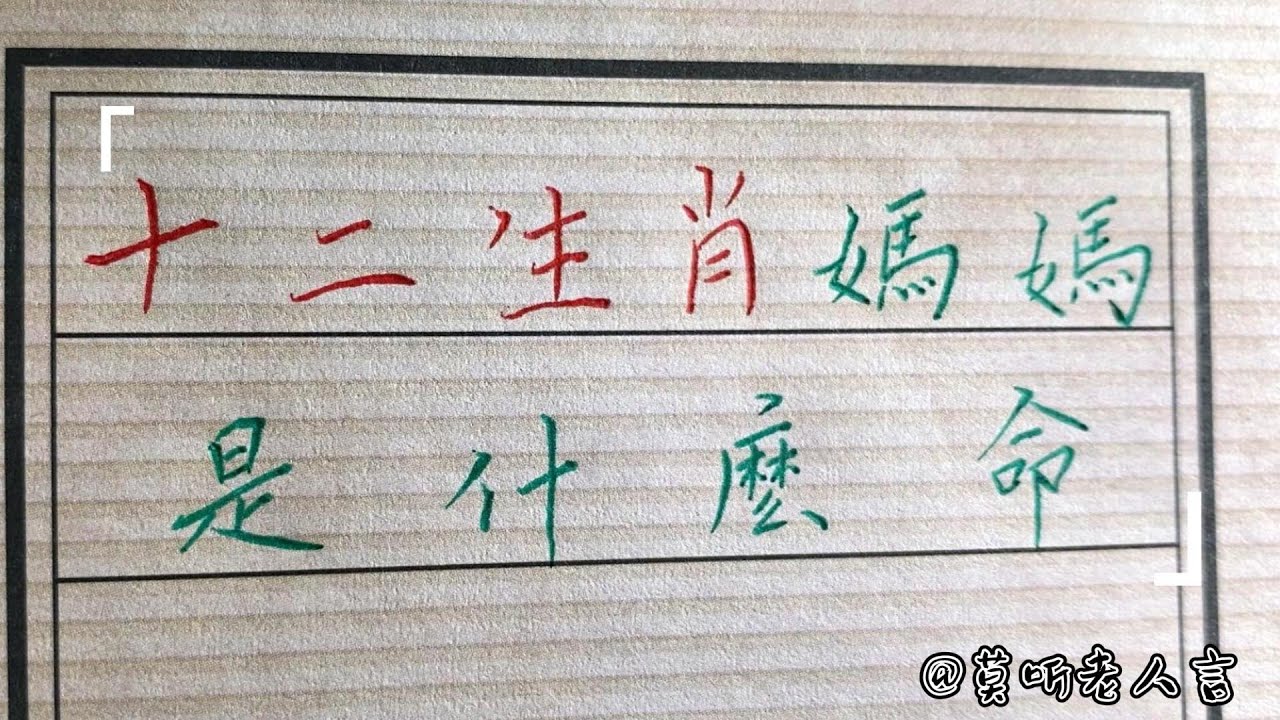 十二生肖媽媽
是什麼命
@莫听老人言